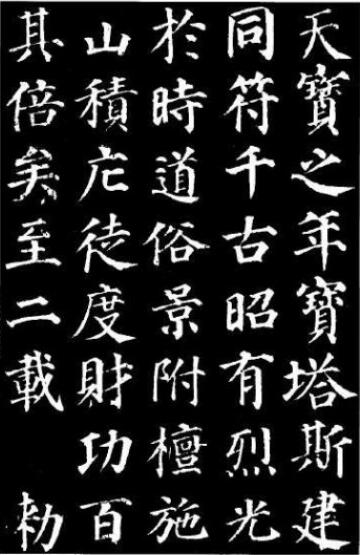 天寶之年寶塔斯建
同符千古昭有烈光
於時道俗景附檀施
山積庀徒度財功百
其倍矣至二載 勑